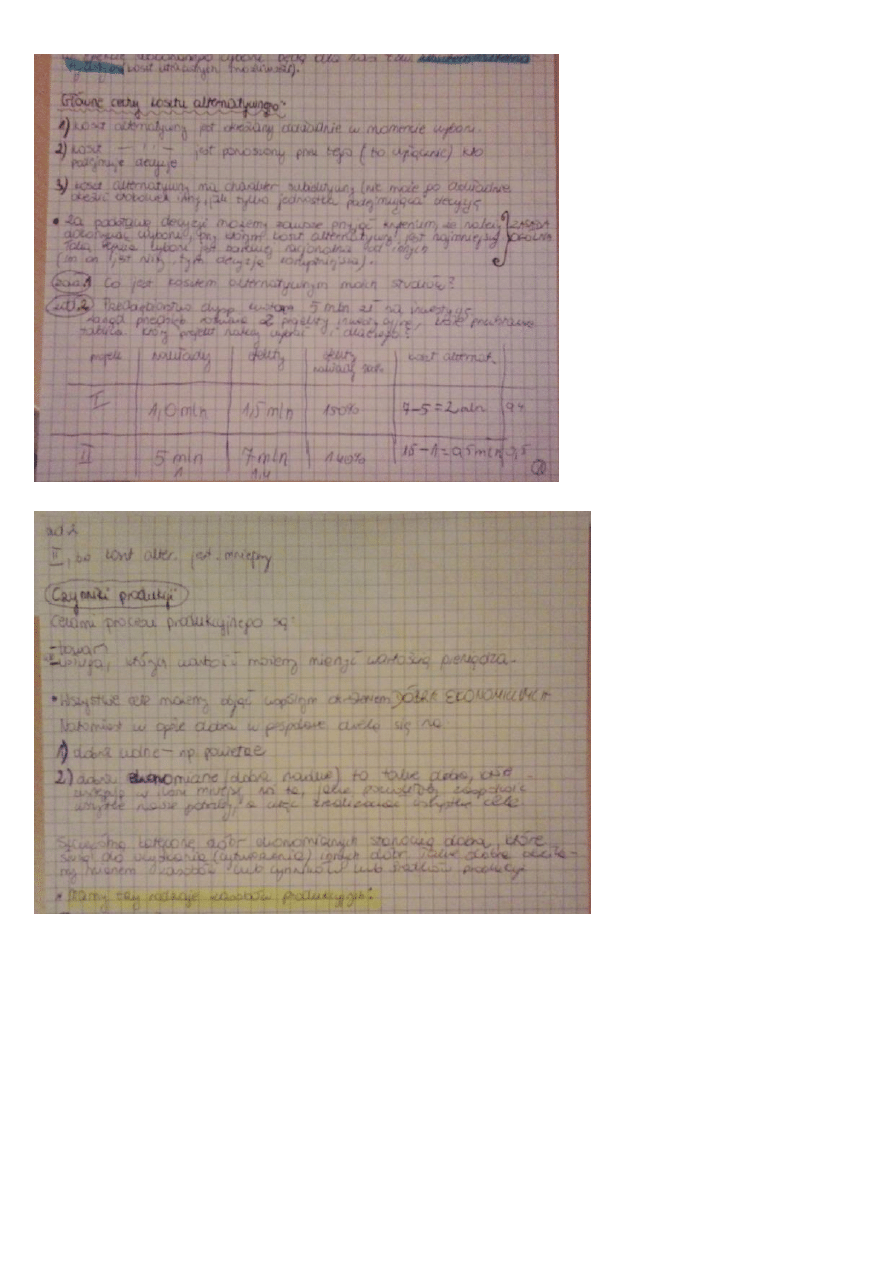 (koszt utraconych możliwości).
Główne cechy kosztu alternatywnego:
1) koszt alternatywny jest określany dokładnie w momencie wyboru.
2) koszt —"— jest ponoszony przez tego (to wyłącznie) kto
podejmuje decyzje
3) koszt alternatywny ma charakter subiektywny (nie może go dokładnie
określić ktokolwiek inny, jak tylko jednostka podejmująca decyzję
• Za podstawę decyzji możemy zawsze przyjąć kryterium, że należy
dokonywać wyboru, przy którym koszt alternatywny jest najmniejszy
ZASADA OGÓLNA
(im on jest niższy, tym decyzje korzystniejsze).
zad.1 Co jest kosztem alternatywnym moich studiów?
zad.2 Przedsiębiorstwo 5 mln zł na inwestycje
2 projekty inwestycyjne, które przedstawia
tabela. Który projekt należy wybrać i dlaczego?
projekt nakłady efekty efekty nakłady 100% koszt alternat.
I 1,0 mln 1,5 mln 150% 7-5=2 mln 0,4
II 5 mln 7 mln 140% 1,5-1=0,5 mln 0,5
1 1,4
ad 2
II, bo koszt alter. jest mniejszy
Czynniki produkcji
Celami procesu produkcyjnego są:
- towar
- usługa, których wartość możemy mierzyć wartością pieniądza.
• Wszystkie cele możemy objąć wspólnym określeniem DOBRA EKONOMICZNE
Natomiast w ogóle dobra w gospodarce dzieli się na:
1) dobra wolne - np. powietrze
2) dobra ekonomiczne (dobra rzadkie) to takie dobra, które
występują w ilości mniejszej niż ta, jaka pozwoliłaby zaspokoić
wszystkie nasze potrzeby, a więc zrealizować wszystkie cele.
Szczególną kategorię dóbr ekonomicznych stanowią dobra, które
służą do uzyskania (wytwarzania) innych dóbr. Takie dobra określa-
my mianem zasobów lub czynników lub środków produkcji
• Mamy trzy rodzaje zasobów produkcyjnych: